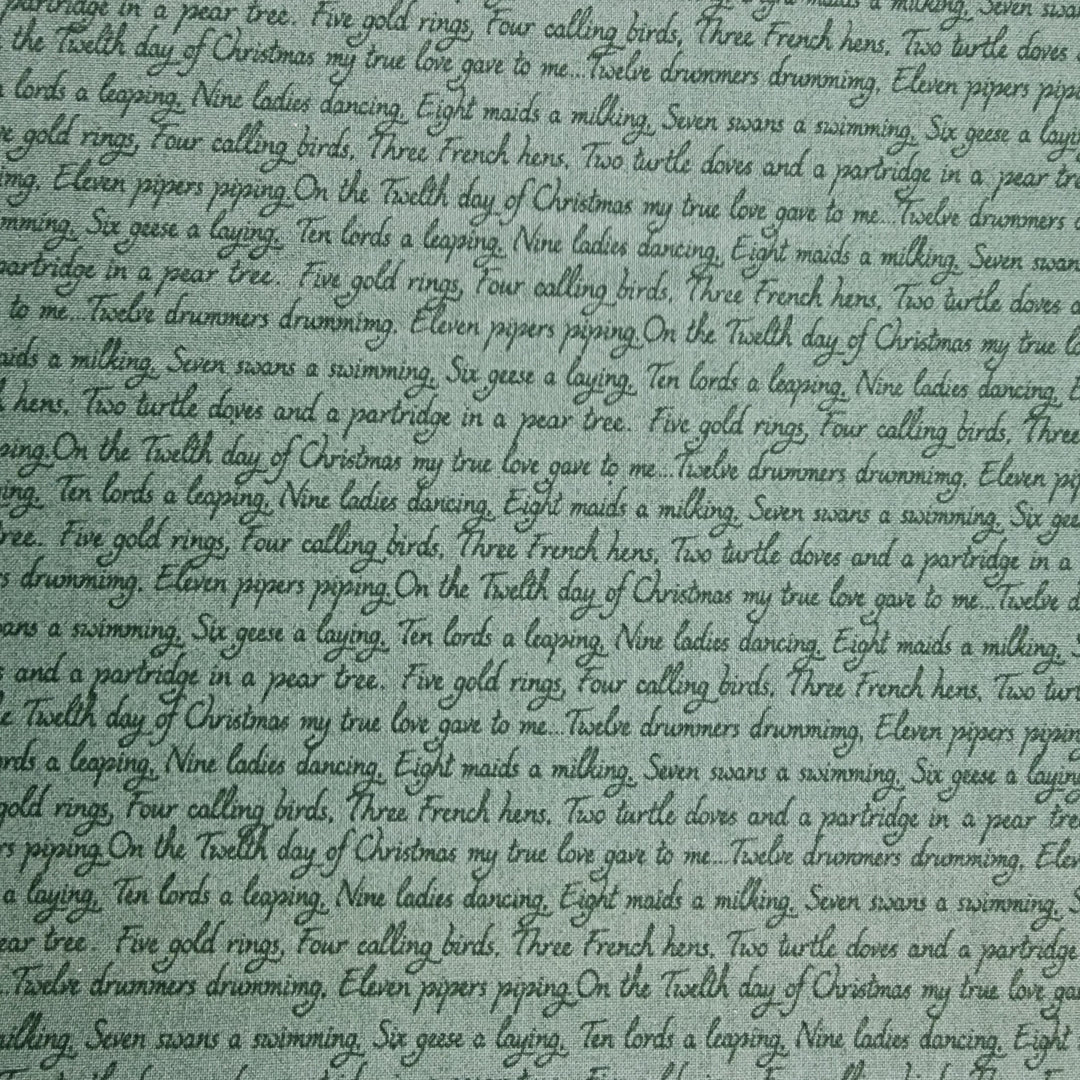 partridge in a pear tree. Five gold rings, Four calling birds, Three French hens, Two turtle doves
the Twelth day of Christmas my true love gave to me...Twelve drummers drummimg, Eleven pipers
lords a leaping, Nine ladies dancing, Eight maids a milking, Seven swans a swimming, Six geese a
gold rings, Four calling birds, Three French hens, Two turtle doves and a partridge in a pear
Eleven pipers piping.On the Twelth day of Christmas my true love gave to me...Twelve drummers
Six geese a laying, Ten lords a leaping, Nine ladies dancing, Eight maids a milking, Seven
partridge in a pear tree. Five gold rings, Four calling birds, Three French hens, Two turtle doves
to me...Twelve drummers drummimg, Eleven pipers piping.On the Twelth day of Christmas my true
a milking, Seven swans a swimming, Six geese a laying, Ten lords a leaping, Nine ladies dancing,
hens, Two turtle doves and a partridge in a pear tree. Five gold rings, Four calling birds, Three
On the Twelth day of Christmas my true love gave to me...Twelve drummers drummimg, Eleven
Ten lords a leaping, Nine ladies dancing, Eight maids a milking, Seven swans a swimming, Six
Five gold rings, Four calling birds, Three French hens, Two turtle doves and a partridge in a
drummimg, Eleven pipers piping.On the Twelth day of Christmas my true love gave to me...Twelve
a swimming, Six geese a laying, Ten lords a leaping, Nine ladies dancing, Eight maids a milking,
and a partridge in a pear tree. Five gold rings, Four calling birds, Three French hens, Two
Twelth day of Christmas my true love gave to me...Twelve drummers drummimg, Eleven pipers
a leaping, Nine ladies dancing, Eight maids a milking, Seven swans a swimming, Six geese a
gold rings, Four calling birds, Three French hens, Two turtle doves and a partridge in a pear
piping.On the Twelth day of Christmas my true love gave to me...Twelve drummers drummimg,
a laying, Ten lords a leaping, Nine ladies dancing, Eight maids a milking, Seven swans a swimming,
tree. Five gold rings, Four calling birds, Three French hens, Two turtle doves and a partridge
...Twelve drummers drummimg, Eleven pipers piping.On the Twelth day of Christmas my true love
milking, Seven swans a swimming, Six geese a laying, Ten lords a leaping, Nine ladies dancing, Eight